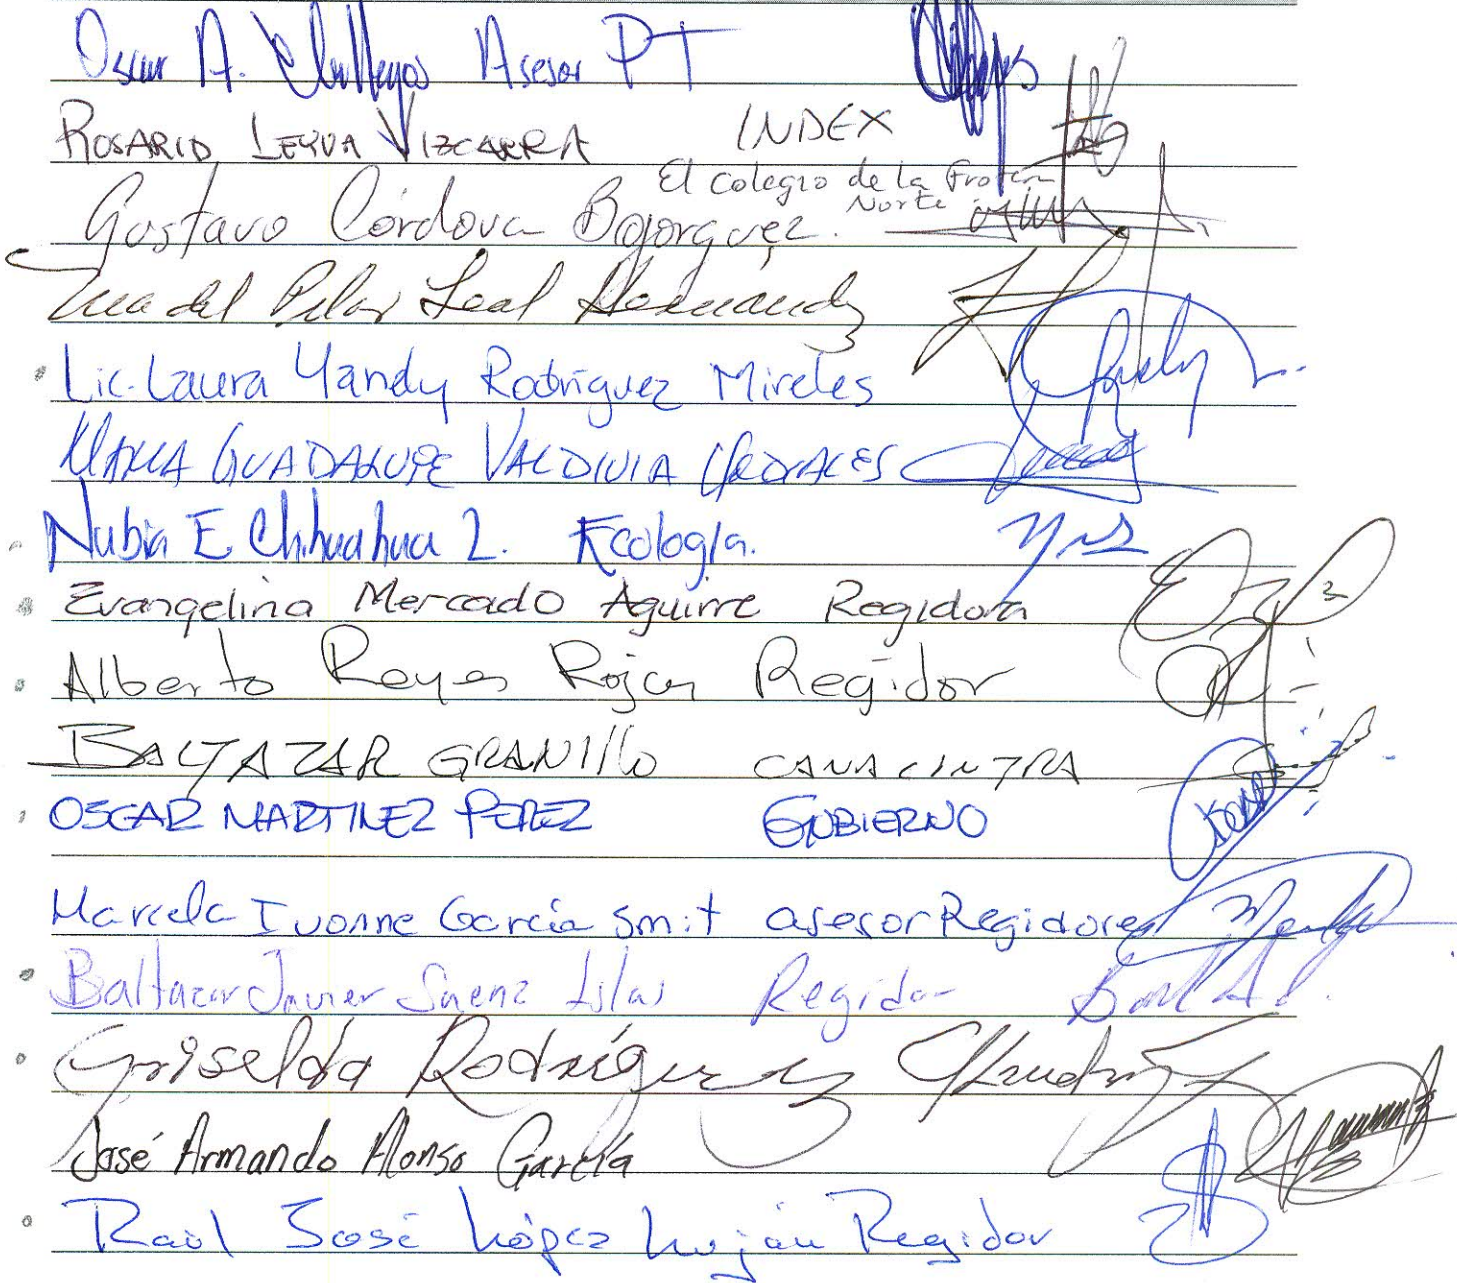 Oscar A. Asesor PT
ROSARIO LEYVA VIZCARRA INDEX
El Colegio de la Frontera
Norte
Gustavo Córdova Bojorquez.
Ma del Pilar Leal Hernandez
Lic. Laura Yandy Rodríguez Mireles
MARIA GUADALUPE VALDIVIA MORALES
Nubia E. Chihuahua L. Ecología.
Evangelina Mercado Aguirre Regidora
Alberto Reyes Rojas Regidor
BALTAZAR GRANIllo CANACINTRA
OSCAR MARTINEZ PEREZ GOBIERNO
Marcela Ivonne García Smit asesor Regidores
Baltazar Javier Saenz Islas Regidor
Griselda Rodríguez
José Armando Alonso García
Raúl José López Luján Regidor